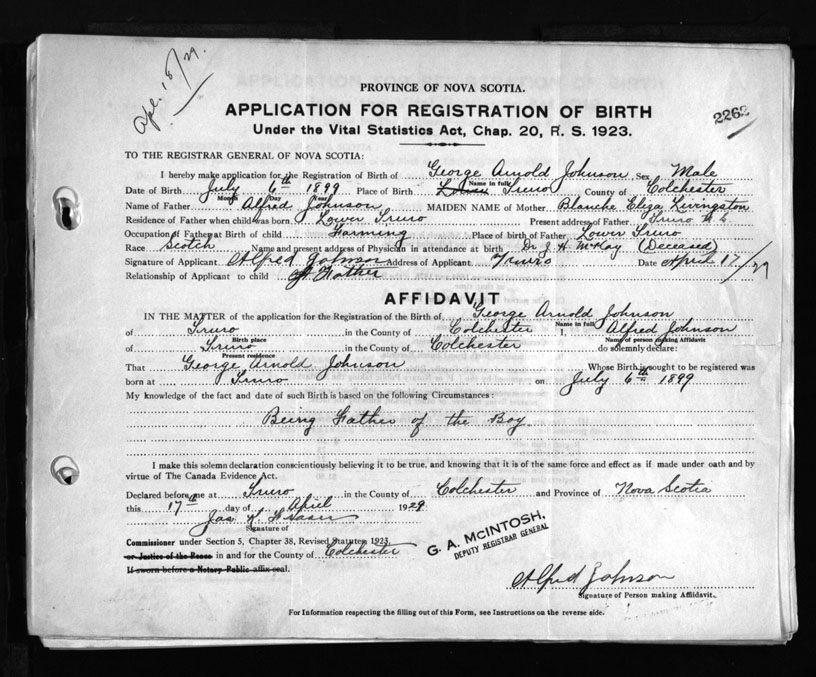 Apl. 18/29.
PROVINCE OF NOVA SCOTIA.
APPLICATION FOR REGISTRATION OF BIRTH
2262
Under the Vital Statistics Act, Chap. 20, R. S. 1923.
TO THE REGISTRAR GENERAL OF NOVA SCOTIA:
I hereby make application for the Registration of Birth of George Arnold Johnson Sex Male
Name in full
Date of Birth July 6th 1899 Place of Birth Lower Truro County of Colchester
Month Day Year
Name of Father Alfred Johnson MAIDEN NAME of Mother Blanche Eliza Livingston
Residence of Father when child was born Lower Truro Present address of Father Truro
Occupation of Father at Birth of child Farming Place of birth of Father Lower Truro
Race Scotch Name and present address of Physician in attendance at birth Dr J. H. McKay (Deceased)
Signature of Applicant Alfred Johnson Address of Applicant Truro Date April 17/29
Relationship of Applicant to child Father
AFFIDAVIT
IN THE MATTER of the application for the Registration of the Birth of George Arnold Johnson
Name in full
of Truro in the County of Colchester I, Alfred Johnson
Birth place Name of person making Affidavit
of Truro in the County of Colchester do solemnly declare:
Present residence
That George Arnold Johnson Whose Birth is sought to be registered was
born at Truro on July 6th 1899
My knowledge of the fact and date of such Birth is based on the following Circumstances:
Being Father of the Boy
I make this solemn declaration conscientiously believing it to be true, and knowing that it is of the same force and effect as if made under oath and by
virtue of The Canada Evidence Act.
Declared before me at Truro in the County of Colchester and Province of Nova Scotia
this 17th day of April 1929
Jas
Signature of
Commissioner under Section 5, Chapter 38, Revised Statutes 1923,
or Justice of the Peace in and for the County of Colchester
If sworn before a Notary Public affix seal.
G. A. McINTOSH,
DEPUTY REGISTRAR GENERAL
Alfred Johnson
Signature of Person making Affidavit.
For Information respecting the filling out of this Form, see Instructions on the reverse side.